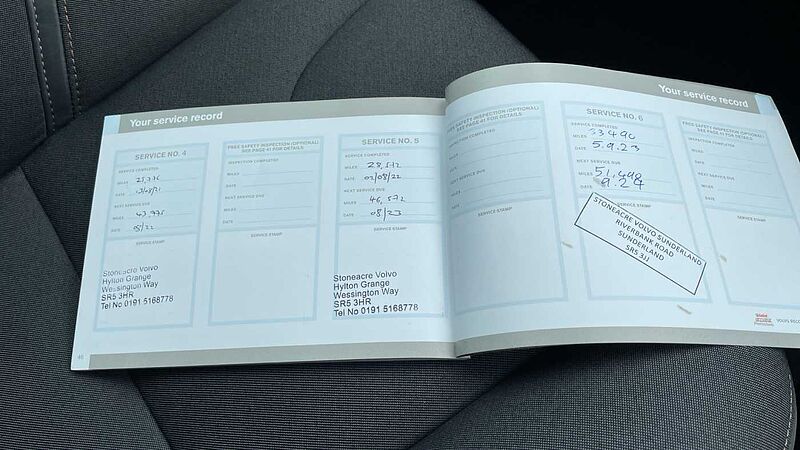 Your service record
SERVICE NO. 4
SERVICE COMPLETED
MILES 25,776
DATE 12/08/21
NEXT SERVICE DUE
MILES 43,776
DATE 08/22
SERVICE STAMP
Stoneacre Volvo
Hylton Grange
Wessington Way
SR5 3HR
Tel No 0191 5168778
46
FREE SAFETY INSPECTION (OPTIONAL)
SEE PAGE 41 FOR DETAILS
INSPECTION COMPLETED
MILES
DATE
NEXT SERVICE DUE
MILES
DATE
SERVICE STAMP
SERVICE NO. 5
SERVICE COMPLETED
MILES 28,572
DATE 02/08/22
NEXT SERVICE DUE
MILES 46,572
DATE 08/23
SERVICE STAMP
Stoneacre Volvo
Hylton Grange
Wessington Way
SR5 3HR
Tel No 0191 5168778
Your service record
FREE SAFETY INSPECTION (OPTIONAL)
SEE PAGE 41 FOR DETAILS
INSPECTION COMPLETED
MILES
DATE
NEXT SERVICE DUE
MILES
DATE
SERVICE STAMP
SERVICE NO. 6
SERVICE COMPLETED
MILES 33490
DATE 5.9.23
NEXT SERVICE DUE
MILES 51,490
DATE 9.24
SERVICE STAMP
STONEACRE VOLVO SUNDERLAND
RIVERBANK ROAD
SUNDERLAND
SR5 3JJ
FREE SAFETY INSPECTION (OPTIONAL)
SEE PAGE 41 FOR DETAILS
INSPECTION COMPLETED
MILES
DATE
NEXT SERVICE DUE
MILES
DATE
SERVICE STAMP